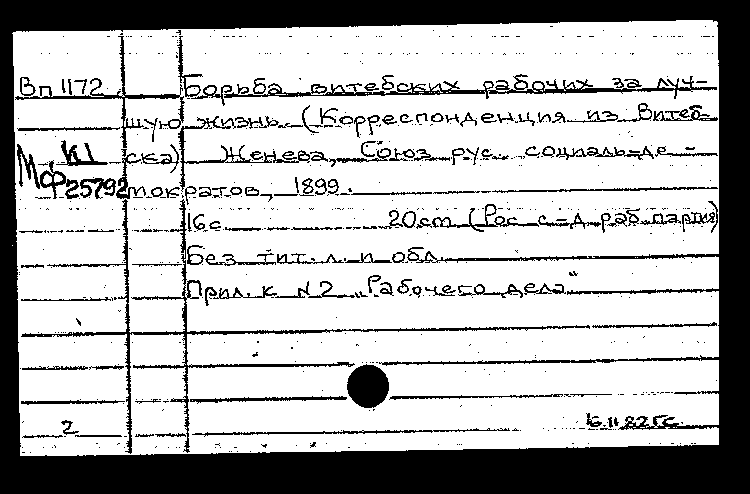 Вп 1172 Борьба витебских рабочих за луч-
шую жизнь. (Корреспонденция из Витеб-
Мф К1 ска) Женева, Союз рус. социаль-де-
25792 мократов, 1899.
16с 20cm (Рос с-д раб партия)
Без тит. л. и обл.
Прил. к N2 „Рабочего дела"
2